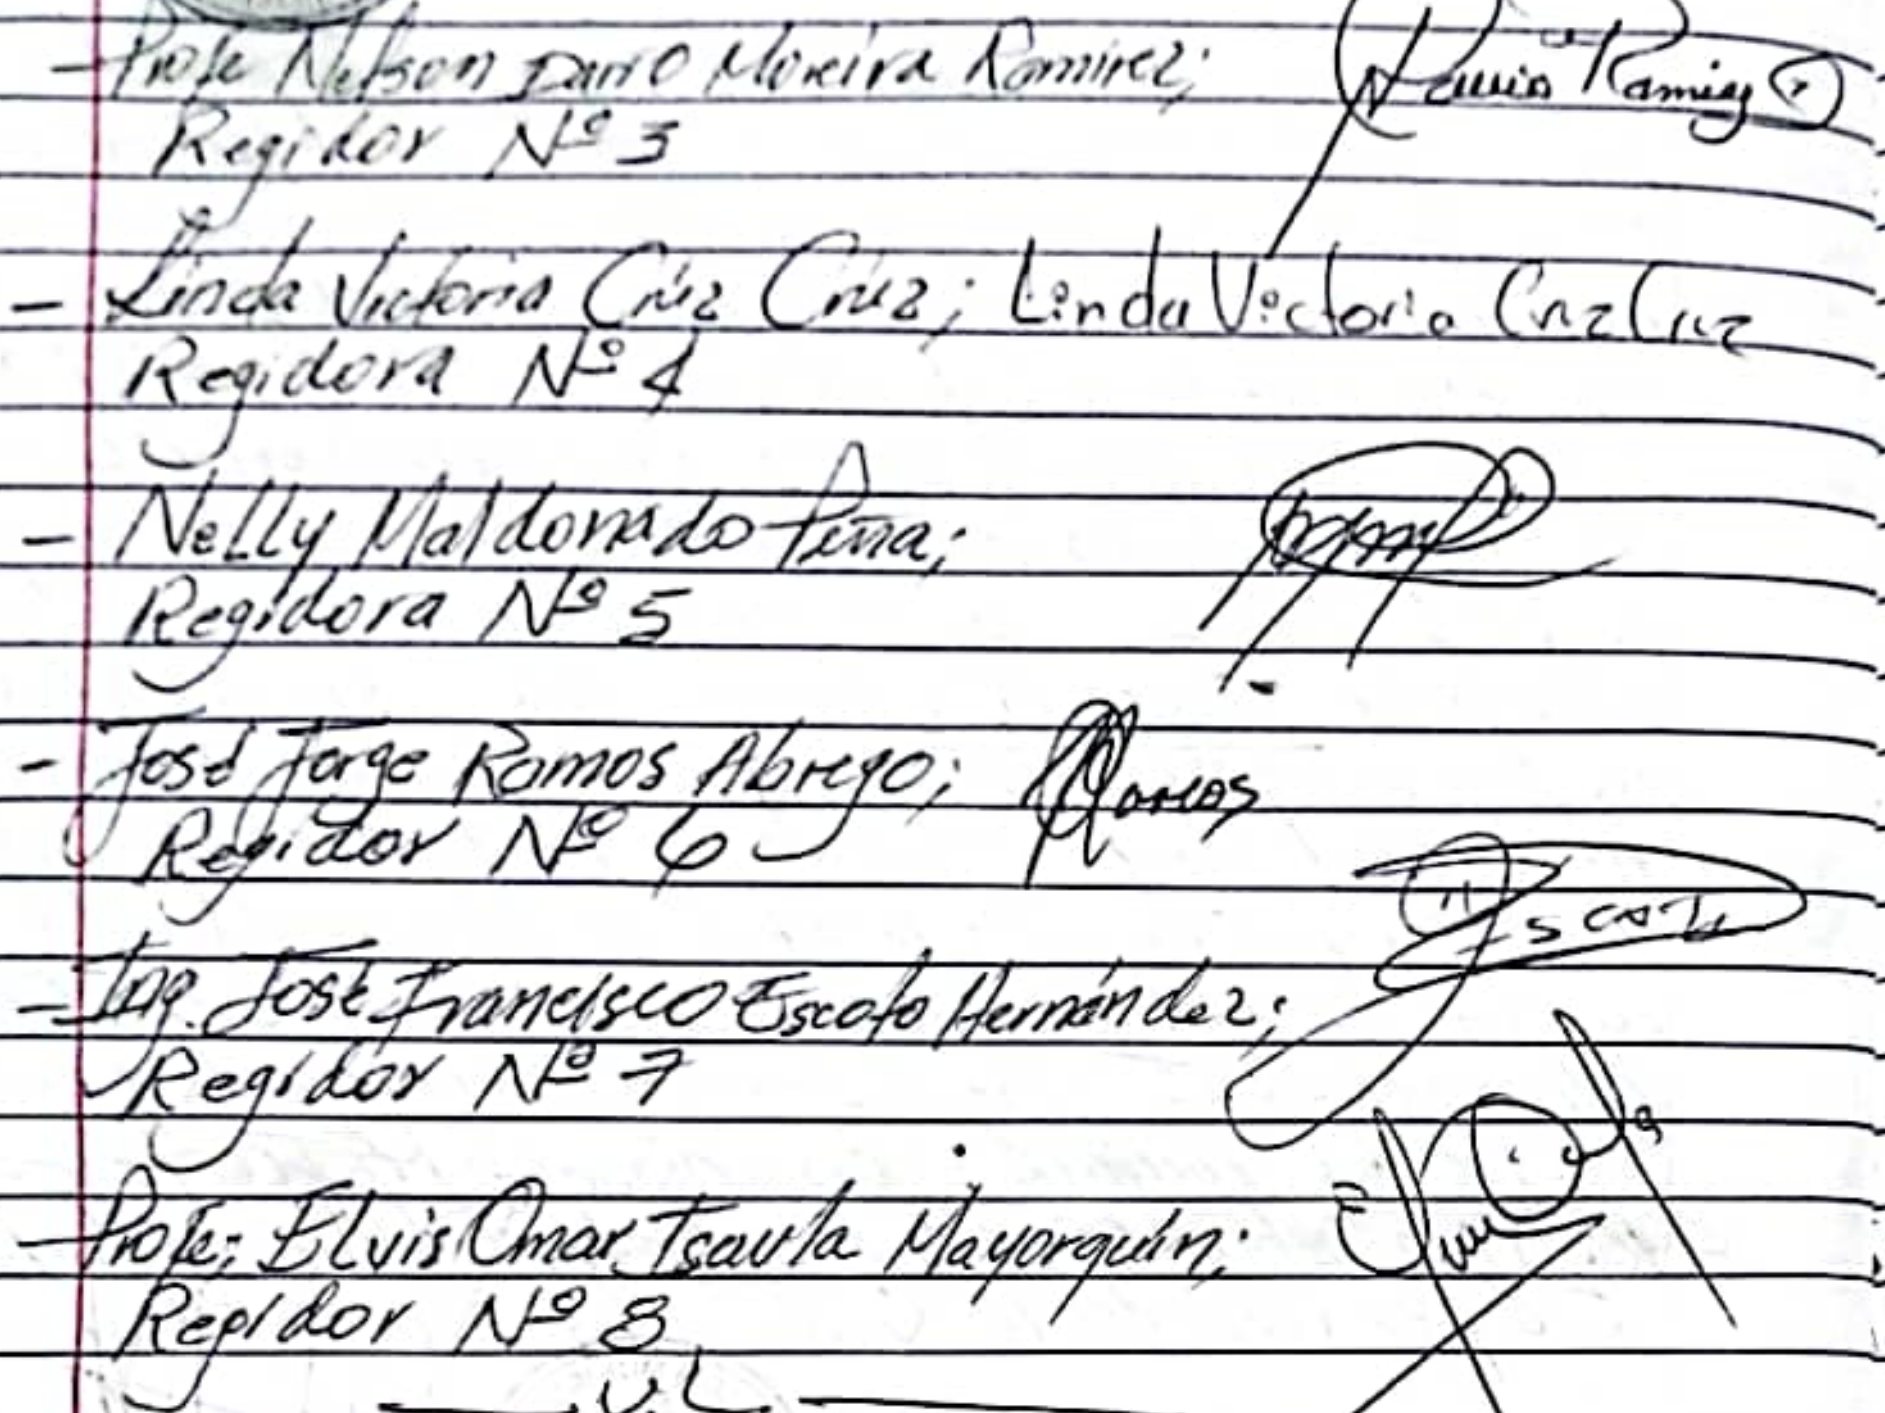 - Profe Nelson Dario Moreira Ramirez;
Regidor Nº 3
- Linda Victoria Crúz Crúz; Linda Victoria Cruz Cruz
Regidora Nº 4
- Nelly Maldonado Peña;
Regidora Nº 5
- José Jorge Ramos Abrego; Ramos
Regidor Nº 6
- Ing. José Francisco Escoto Hernández; Escoto
Regidor Nº 7
- Profe; Elvis Omar Isaula Mayorquín;
Regidor Nº 8